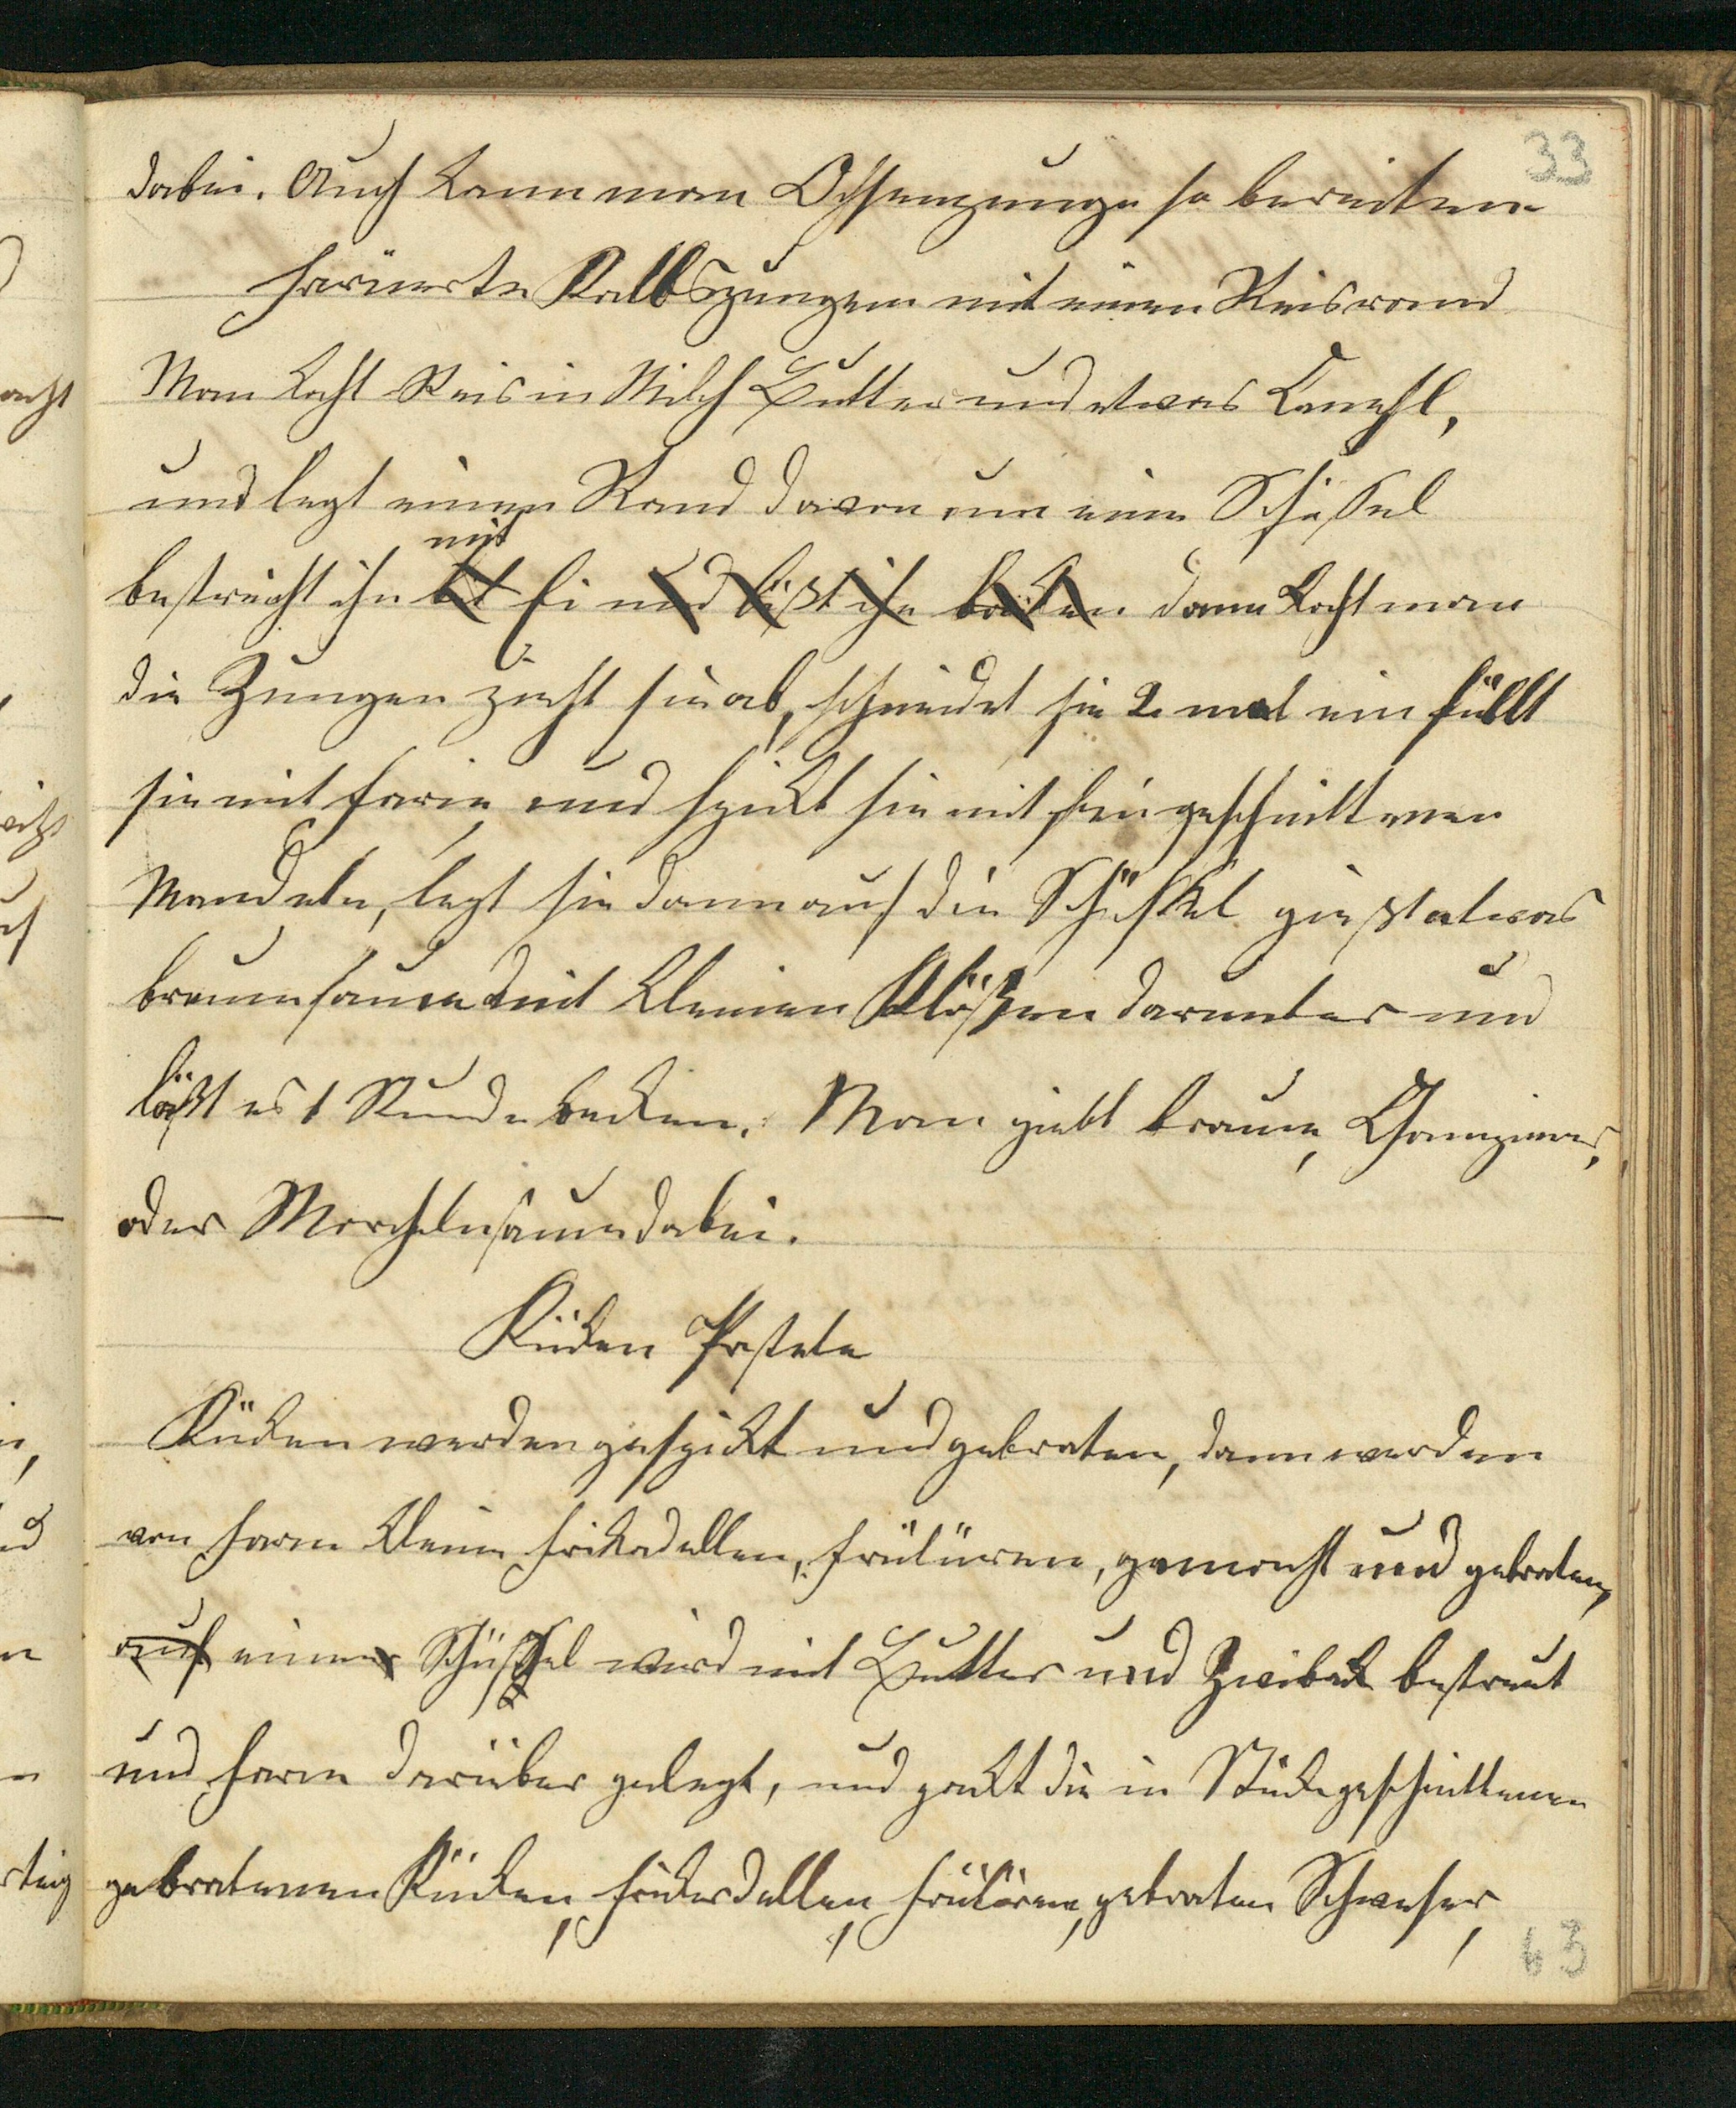 33
dabei. Auch kann man Ochsenzunge so bereiten
Farüerte Kalbszungen mit einen Reisrand
Man kocht Reis in Milch Butter und etwas Canehl,
und legt einen Rand davon um eine Schüssel
mit
bestreicht ihn Ei und läßt ihn backen dann kocht man
die Zungen zieht sie ab, schneidet sie 2 mal ein füllt
sie mit Farce, und spickt sie mit feingeschnittenen
Mandeln, legt sie dann auf die Schüssel gießt etwas
braunsauce mit kleinen Klößen darunter und
läßt es 1 Stunde backen. Man giebt braune, Champions,
oder Morchelnsauce dabei.
Küken Pastete
Küken werden gespickt und gebraten, dann werden
von Farce kleine Frikadellen, fritüren, gemacht und gebraten,
auf einer Schüssel wird mit Butter und Zwiback bestreut
und Farce darüber gelegt, und packt die in Stücke geschnittenen
gebratenen Küken, Frikadellen, fritüren, gebraten Schweser,
63